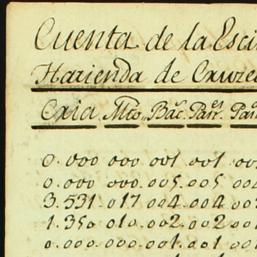 Cuenta de la Esci
Hazienda de Cruze
Cria. Mto. Bac. Parr.es Par
0.000 000 001 001 00
0.000 000.005.005 00
3.531.017 004.004 00
1.350 010.002.002 00
0.000.000.001.001 00